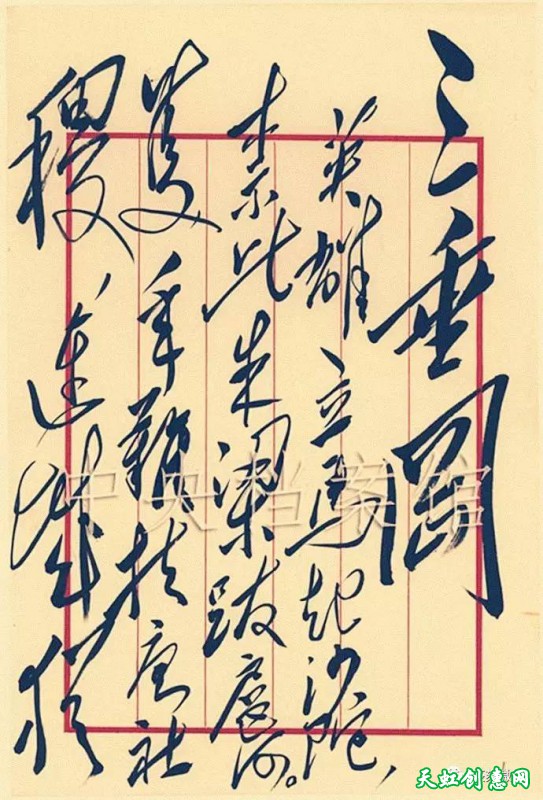 三垂冈
英雄立马起沙陀，
奈此朱梁跋扈何。
隻手难扶唐社
稷，连城犹
中央档案馆
天虹创惠网